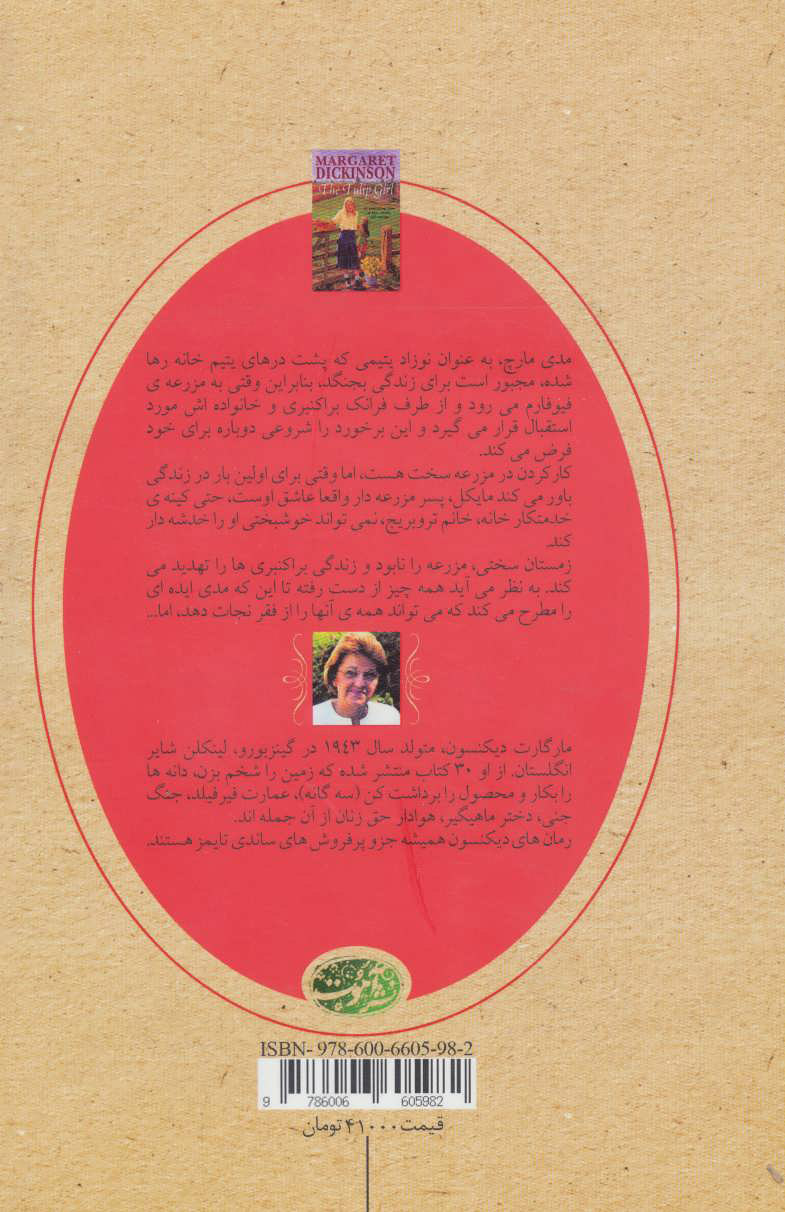 MARGARET
DICKINSON
The Tulip Girl
مدی مارچ، به عنوان نوزاد یتیمی که پشت درهای یتیم خانه رها
شده، مجبور است برای زندگی بجنگد، بنابراین وقتی به مزرعه ی
فیوفارم می رود و از طرف فرانک براکنبری و خانواده اش مورد
استقبال قرار می گیرد و این برخورد را شروعی دوباره برای خود
فرض می کند.
کارکردن در مزرعه سخت هست، اما وقتی برای اولین بار در زندگی
باور می کند مایکل، پسر مزرعه دار واقعا عاشق اوست، حتی کینه ی
خدمتکار خانه، خانم تروبریج، نمی تواند خوشبختی او را خدشه دار
کند.
زمستان سختی، مزرعه را نابود و زندگی براکنبری ها را تهدید می
کند. به نظر می آید همه چیز از دست رفته تا این که مدی ایده ای
را مطرح می کند که می تواند همه ی آنها را از فقر نجات دهد، اما...
مارگارت دیکنسون، متولد سال ۱۹۴۳ در گینزبورو، لینکلن شایر
انگلستان. از او ۳۰ کتاب منتشر شده که زمین را شخم بزن، دانه ها
را بکار و محصول را برداشت کن (سه گانه)، عمارت فیرفیلد، جنگ
جنی، دختر ماهیگیر، هوادار حق زنان از آن جمله اند.
رمان های دیکنسون همیشه جزو پرفروش های ساندی تایمز هستند.
ISBN- 978-600-6605-98-2
9 786006 605982
قیمت ۴۱۰۰۰ تومان